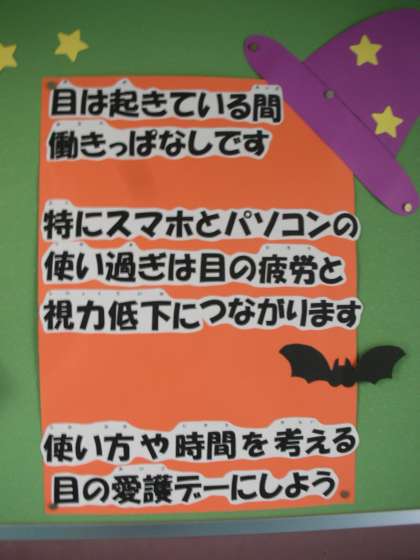 目は起きている間
働きっぱなしです
特にスマホとパソコンの
使い過ぎは目の疲労と
視力低下につながります
使い方や時間を考える
目の愛護デーにしよう